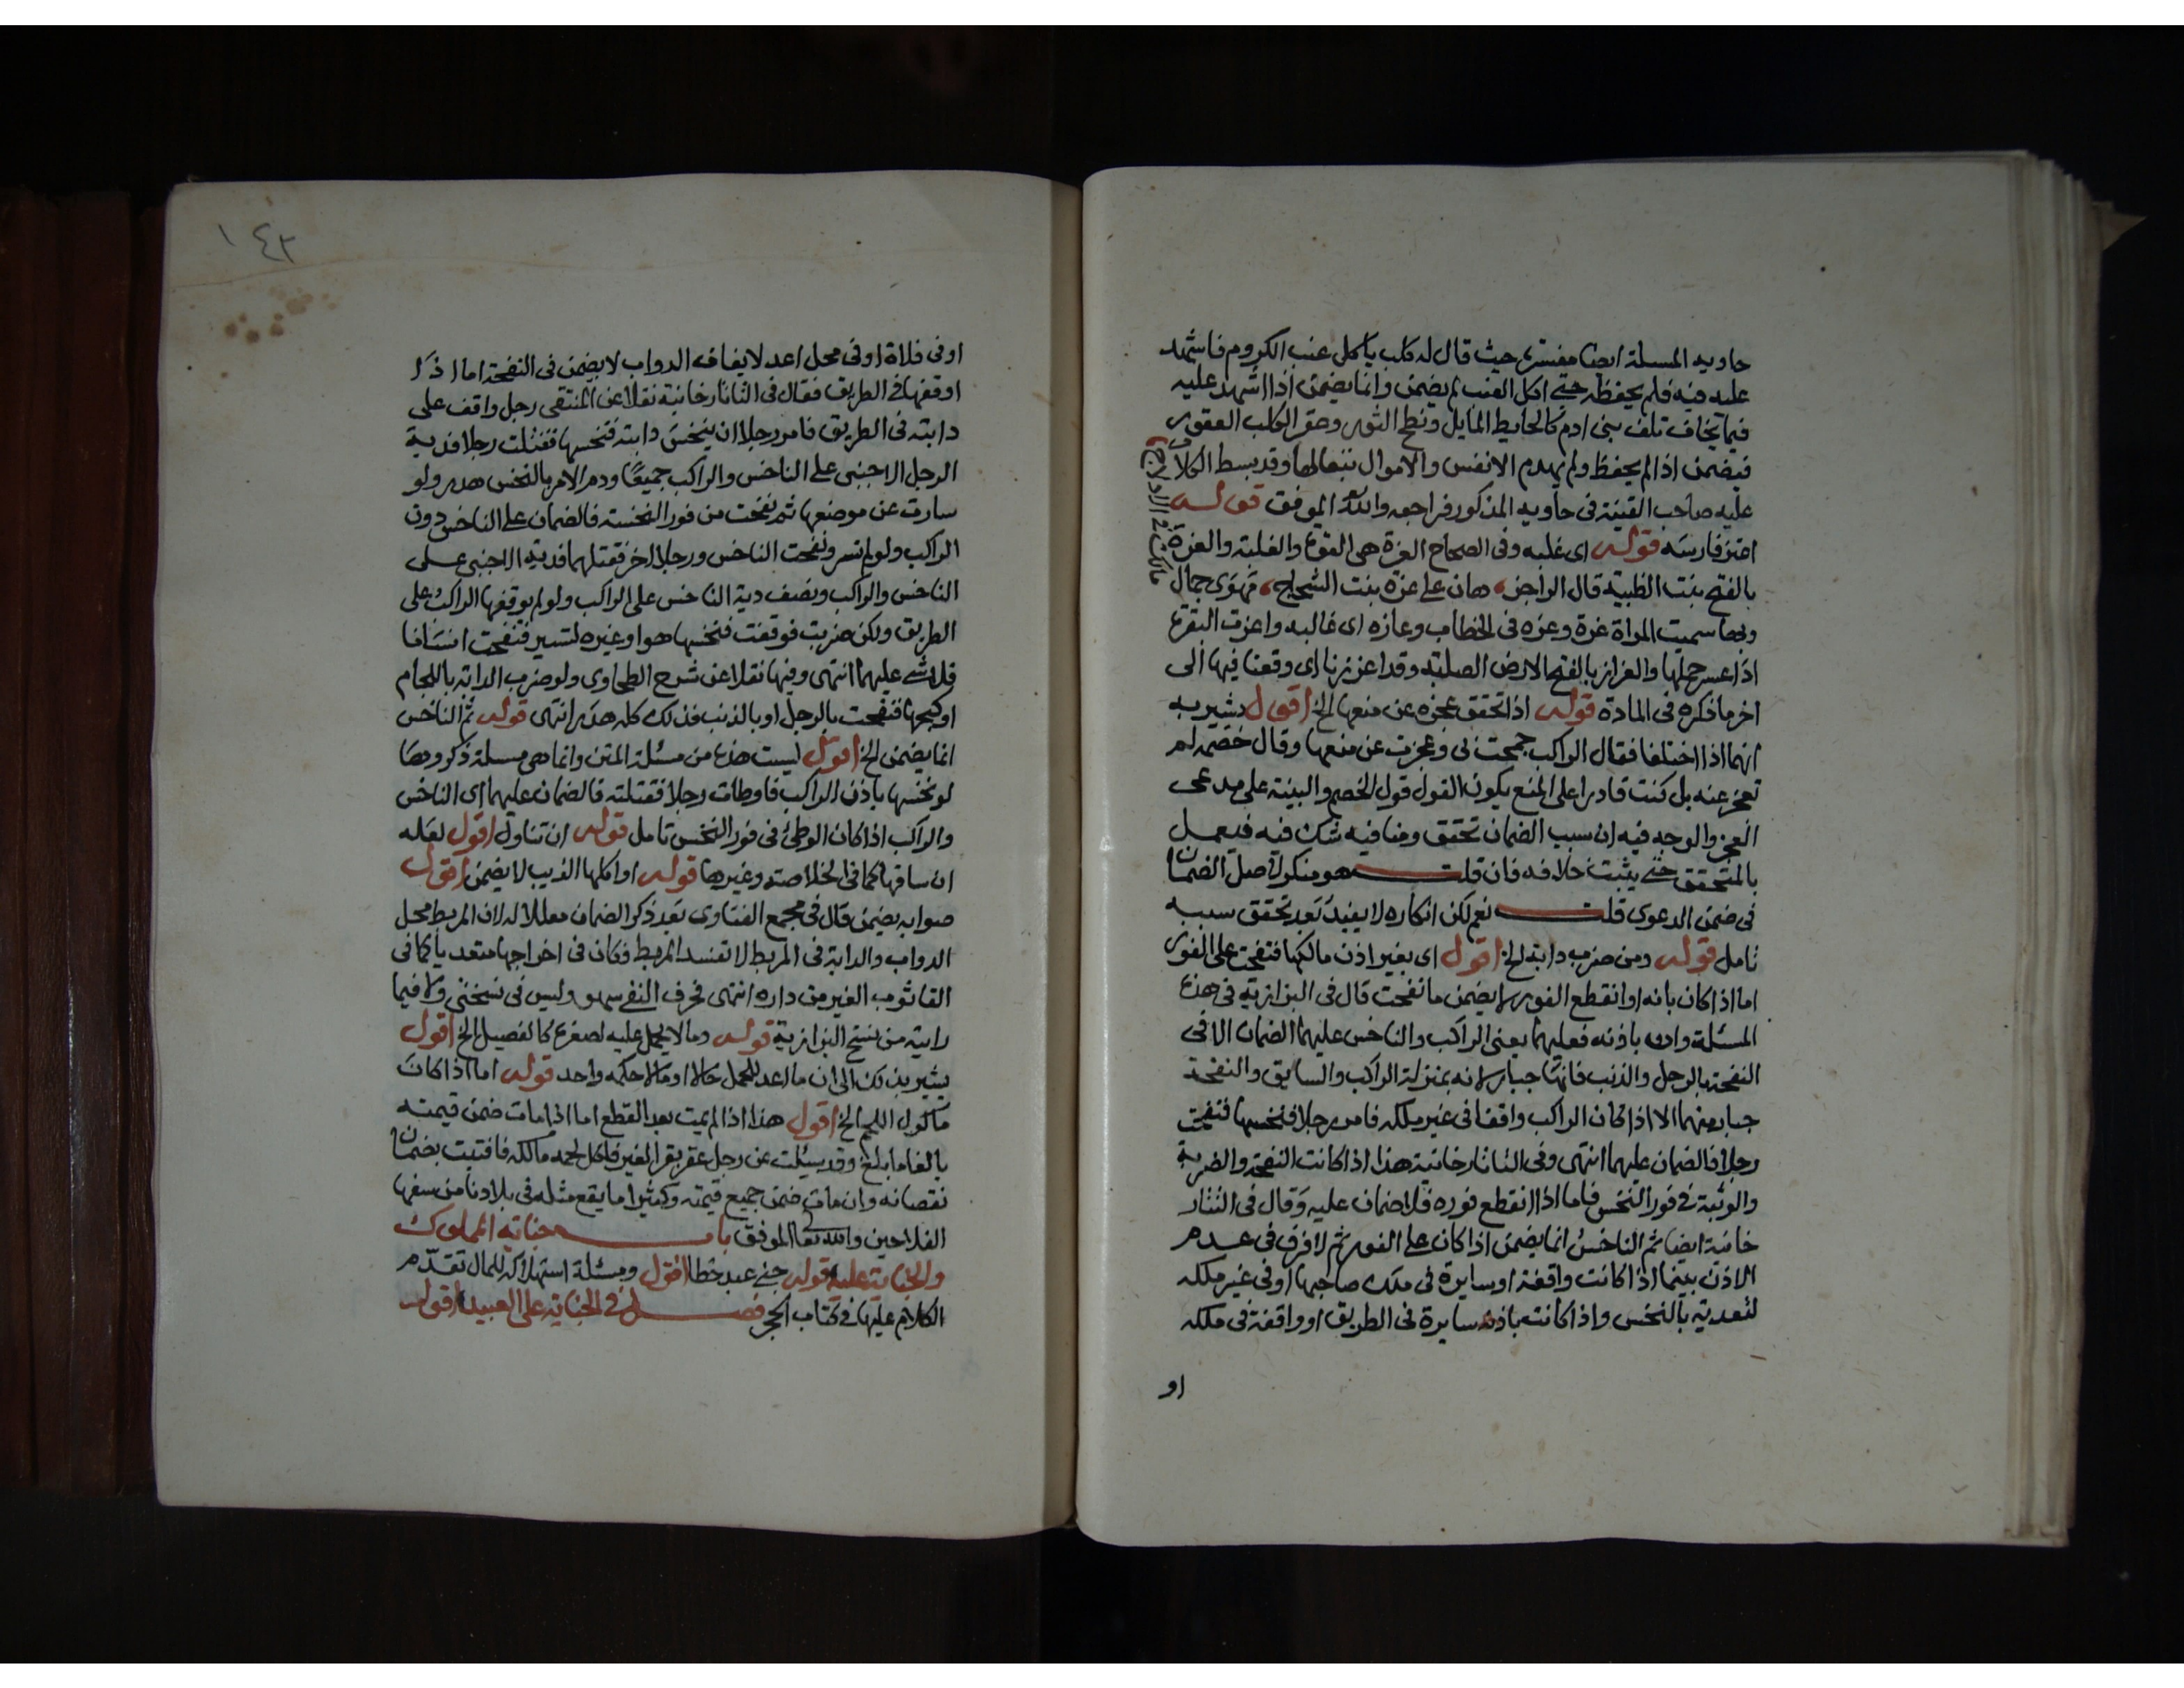 حاويه المسلة ايضا مفسرة حيث قال له كلب ياكل عنب الكروم فاشهد
عليه فيه فلم يحفظه حتى اكل العنب لم يضمن وانما يضمن اذا اشهد عليه
فيما يخاف تلف بنى ادم كالحايط المايل ونطح الثور وعقر الكلب العقور
فيضمن اذا لم يحفظ ولم يهدم الانفس والاموال تبعا لها وقد بسط الكلام
عليه صاحب القنية فى حاويه المذكور فراجعه والله الموفق قوله
اعتز فارسه قوله اى غلبه وفى الصحاح العزة هى القوة والغلبة والعزة
بالفتح بنت الظبية قال الراجز هان على عزة بنت الشحاج مهوى جمال
وبها سميت المراة عزة وعزه فى الخطاب وعازه اى غالبه واعزت البقرة
اذا عسر حملها والعزاز بالفتح الارض الصلبة وقد اعززنا اى وقعنا فيها الى
اخر ما ذكره فى المادة قوله اذا تحقق عجزه عن منعها الخ اقول يشير به
انهما اذا اختلفا فقال الراكب جمحت بى وعجزت عن منعها وقال خصمه لم
تعجز عنه بل كنت قادرا على المنع يكون القول قول الخصم والبينة على مدعى
العجز والوجه فيه ان سبب الضمان تحقق ومنافيه شك فيه فيعمل
بالمتحقق حتى يثبت خلافه فان قلت هو منكر لاصل الضمان
فى ضمن الدعوى قلت نعم لكن انكاره لا يفيد بعد تحقق سببه
تامل قوله ومن ضرب دابة الخ اقول اى بغير اذن مالكها فنفحت على الفور
اما اذا كان باذنه او انقطع الفور لا يضمن ما نفحت قال فى البزازية فى هذه
المسئلة وان باذنه فعليهما يعنى الراكب والناخس عليهما الضمان الا فى
النفحة بالرجل والذنب فانها جبار لانه بمنزلة الراكب والسايق والنفحة
جبار منهما الا اذا كان الراكب واقفا فى غير ملكه فامر رجلا فنخسها فنفحت
رجلا فالضمان عليهما انتهى وفى التاتارخانية هذا اذا كانت النفحة والضربة
والوثبة فى فور النخس فاما اذا انقطع فوره فلا ضمان عليه وقال فى التتار
خانية ايضا ثم الناخس انما يضمن اذا كان على الفور ثم لا فرق فى عدم
الاذن بينما اذا كانت واقفة او سايرة فى ملك صاحبها او فى غير ملكه
لتعديه بالنخس واذا كانت باذنه سايرة فى الطريق او واقفة فى ملكه
او
١٤٣
او فى فلاة او فى محل اعد لايقاف الدواب لا يضمن فى النفحة اما اذا
اوقفها فى الطريق فقال فى التاتارخانية نقلا عن المنتقى رجل واقف على
دابته فى الطريق فامر رجلا ان ينخس دابته فنخسها فقتلت رجلا فدية
الرجل الاجنبى على الناخس والراكب جميعا ودم الامر بالنخس هدر ولو
سارت عن موضعها ثم نفحت من فور النخسة فالضمان على الناخس دون
الراكب ولو لم تسر ونفحت الناخس ورجلا اخر فقتلهما فدية الاجنبى على
الناخس والراكب ونصف دية الناخس على الراكب ولو لم يوقفها الراكب على
الطريق ولكن ضربت فوقفت فنخسها هو او غيره لتسير فنفحت انسانا
فلا شى عليهما انتهى وفيها نقلا عن شرح الطحاوى ولو ضرب الدابة باللجام
او كبحها فنفحت بالرجل او بالذنب فذلك كله هدر انتهى قوله ثم الناخس
انما يضمن الخ اقول ليست هذه من مسئلة المتن وانما هى مسئلة ذكروها
لو نخسها باذن الراكب فاوطات رجلا فقتلته فالضمان عليهما اى الناخس
والراكب اذا كان الوطئ فى فور النخس تامل قوله ان تناول اقول لعله
ان ساقها كما فى الخلاصة وغيرها قوله او اكلها الذيب لا يضمن اقول
صوابه يضمن قال فى مجمع الفتاوى بعد ذكر الضمان معللا له لان المربط محل
الدواب والدابة فى المربط لا تفسد المربط فكان فى اخراجها متعديا كما فى
القا ثوب الغير من داره انتهى فحرف النفى سهو وليس فى نسختى ولا فيما
رايته من نسخ البزازية قوله وما لا يحمل عليه لصغره كالفصيل الخ اقول
يشير بذلك الى ان ما اعد للحمل حالا او مالا حكمه واحد قوله اما اذا كانت
ماكول اللحم الخ اقول هذا اذا لم يمت بعد القطع اما اذا مات ضمن قيمته
بالغا ما بلغ وقد سئلت عن رجل عقر بقر الغير فاكل لحمه مالكه فافتيت بضمان
نقصانه وان مات ضمن جميع قيمته وكثيرا ما يقع مثله فى بلادنا من سفها
الفلاحين والله تعالى الموفق باب جناية المملوك
والجناية عليه قوله جنى عبد خطا اقول ومسئلة استهلاكه للمال تقدم
الكلام عليها فى كتاب الحجر فصل فى الجناية على العبيد قوله